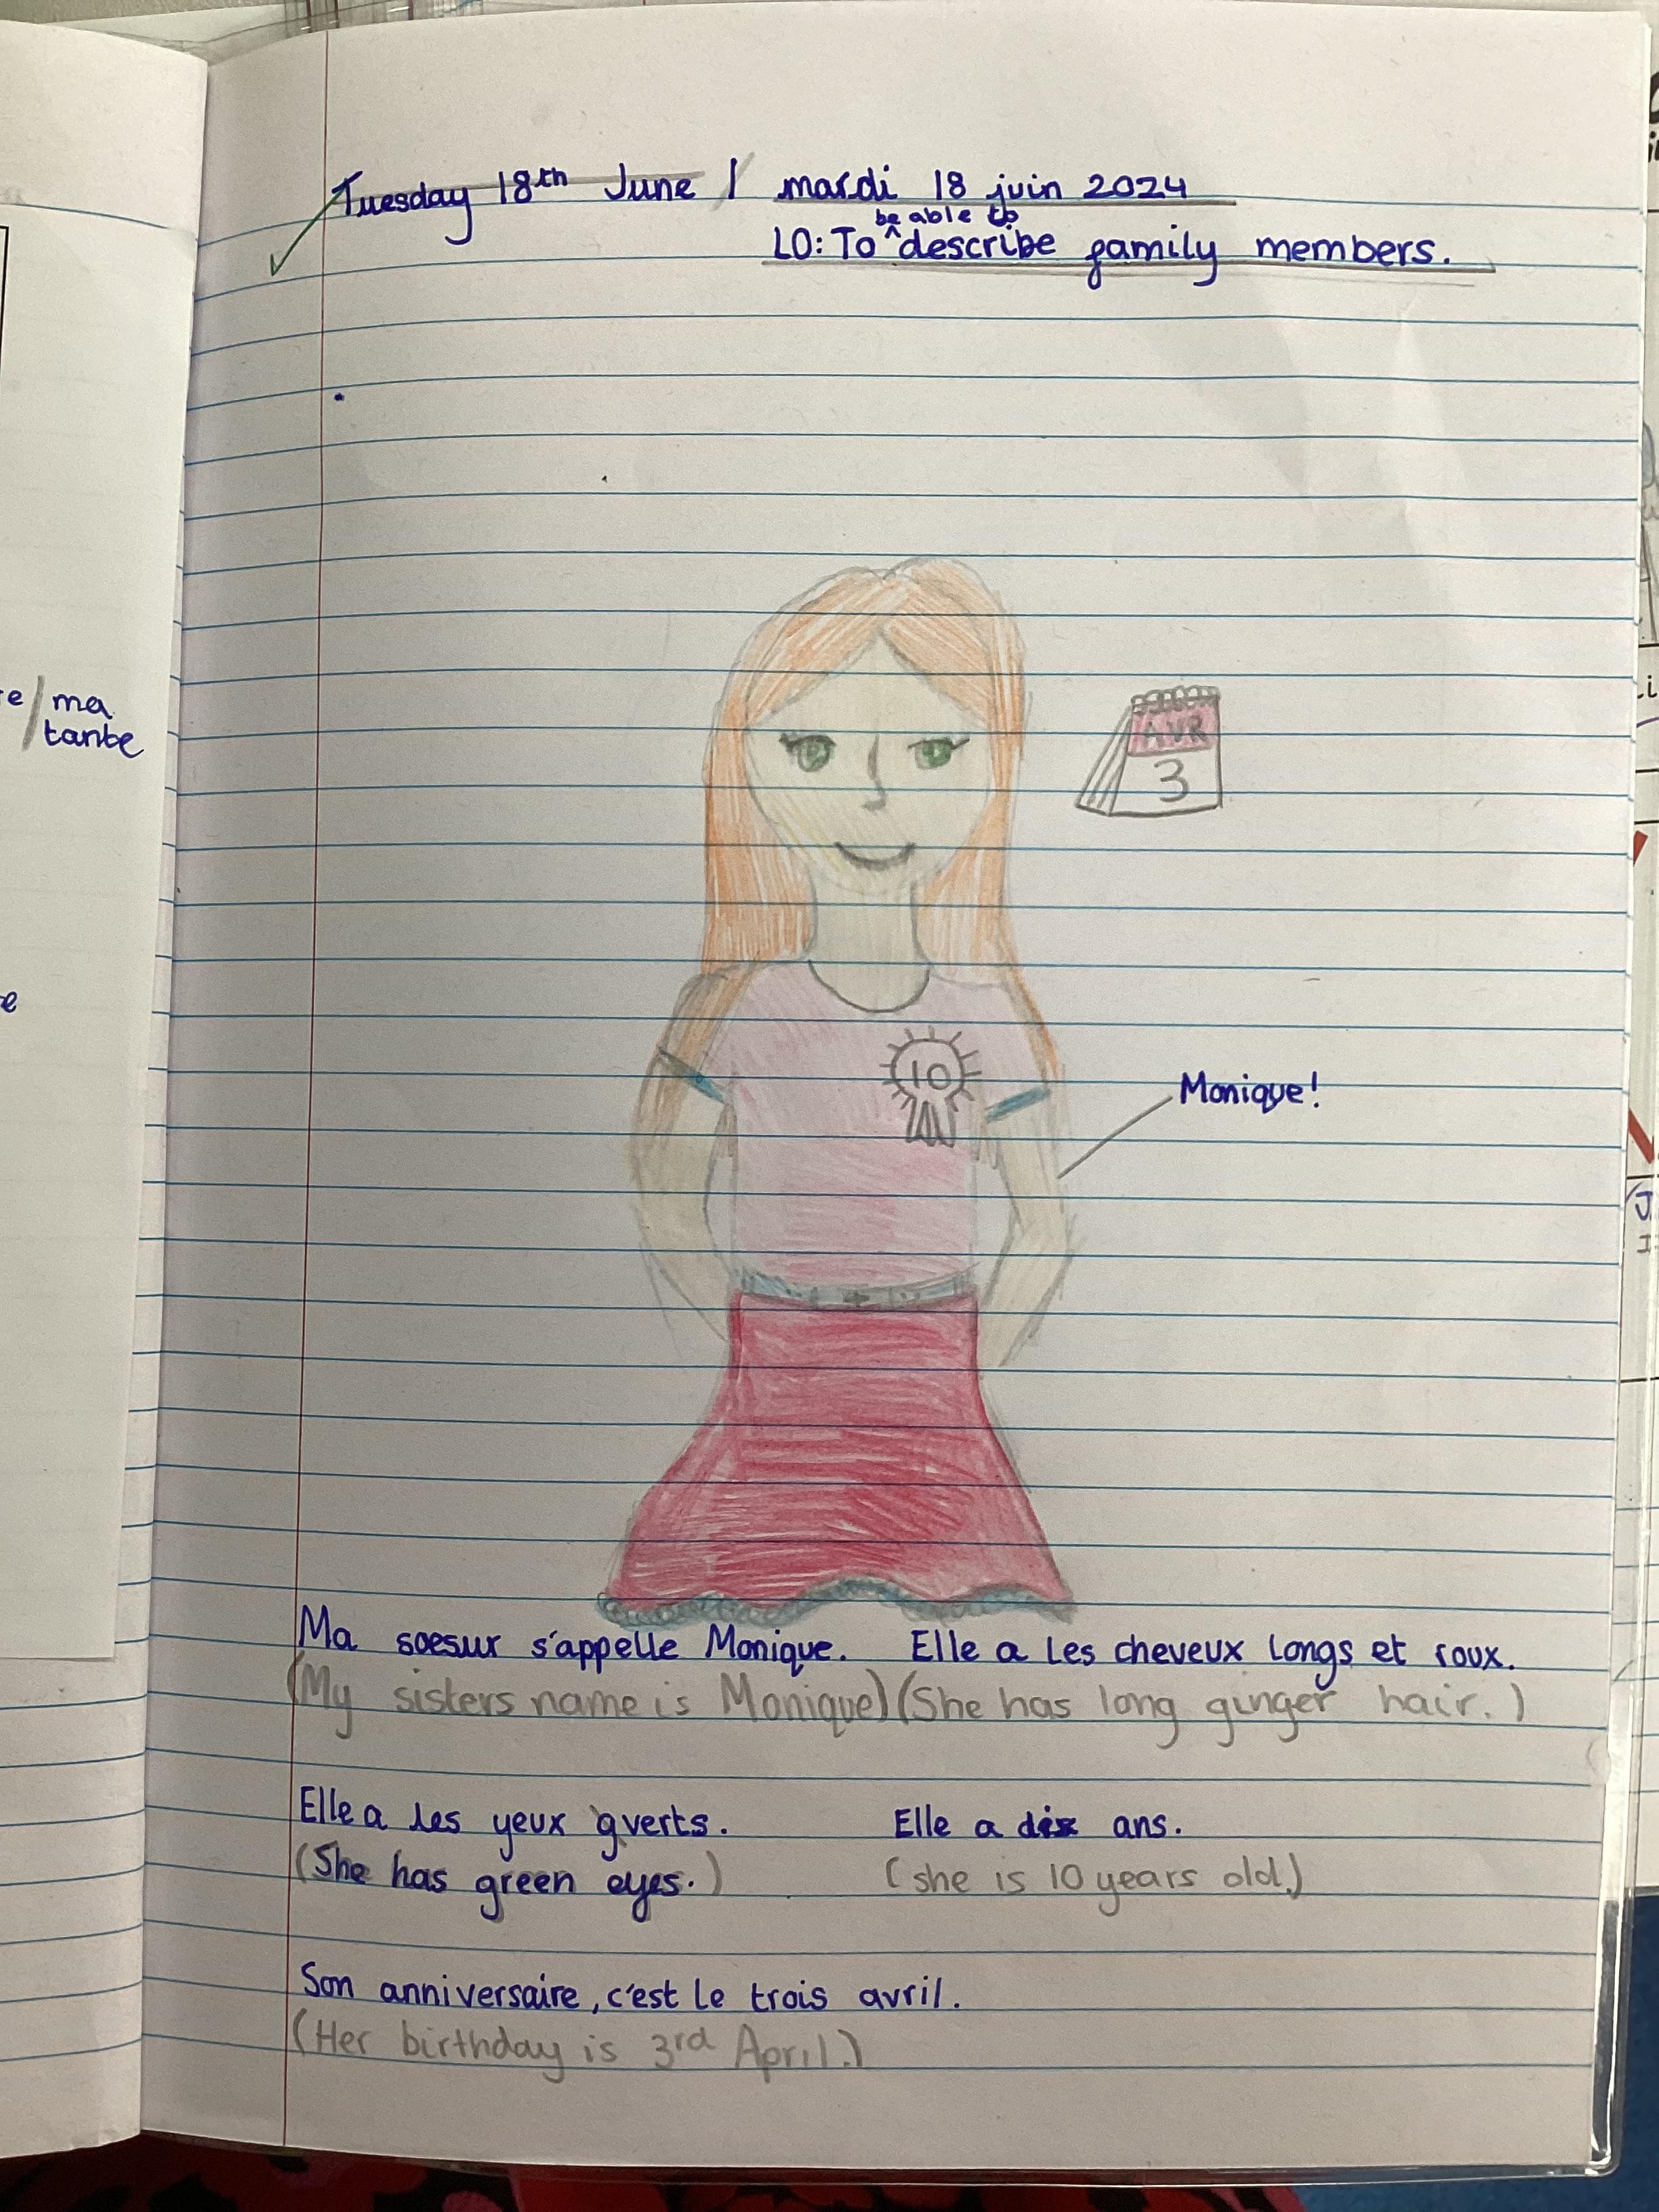 Tuesday 18th June / mardi 18 juin 2024
be able to
LO: To ^ describe family members.
e / ma
tante
AVR
3
10
Monique!
e
Ma soesur s'appelle Monique. Elle a les cheveux longs et roux.
(My sisters name is Monique) (She has long ginger hair.)
Elle a les yeux gverts. Elle a dix ans.
(She has green eyes.) (she is 10 years old.)
Son anniversaire, c'est le trois avril.
(Her birthday is 3rd April.)